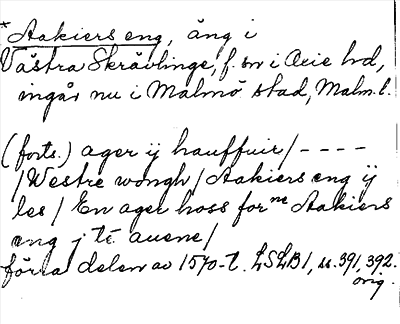 *Aakiers eng, äng i
Västra Skrävlinge, f. sn i Oxie hd,
ingår nu i Malmö stad, Malm. l.
(forts.) ager ij hauffuir/ - - - -
/Westre wongh/ Aakiers eng ij
les/ En ager hoss forne Aakiers
eng j tt. auene/
förra delen av 1570-t. LSLB1, ss. 391, 392.
orig.